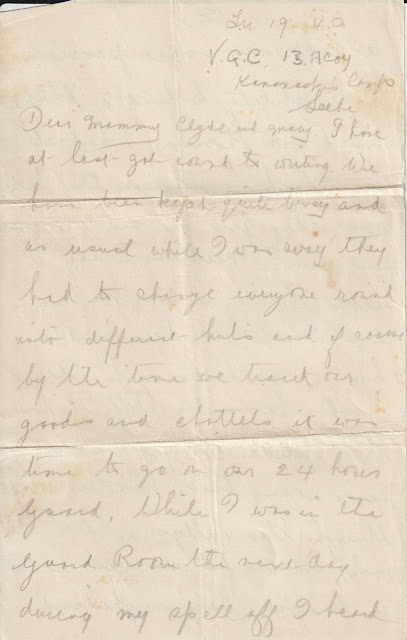 19
V.G.C. 13. A Coy
Kananaskis Camp
Seebe
Dear Mammy Clyde and Mary. I have
at last got round to writing. We
have been kept quite busy and
as usual while I was away they
had to change everyone round
into different huts and of course
by the time we traced our
goods and chattels it was
time to go on our 24 hours
guard. While I was in the
Guard Room the next day
during my spell off I heard